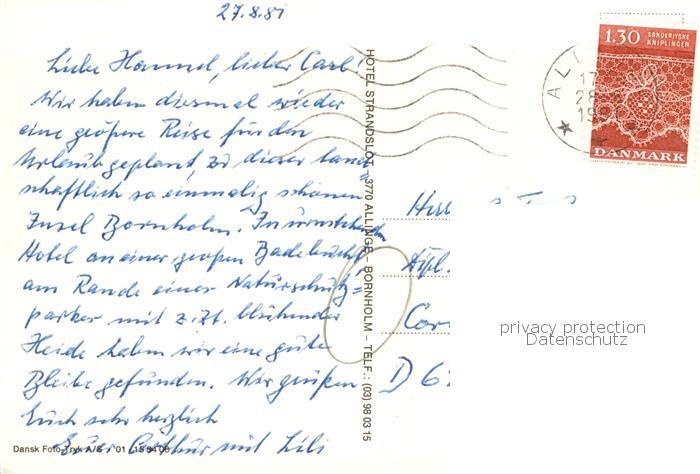 27.8.81
Liebe Hannel, lieber Carl!
Wir haben diesmal wieder
eine größere Reise für den
Urlaub geplant, zu dieser land=
schaftlich so einmalig schönen
Insel Bornholm. In umstehenden
Hotel an einer großen Badebucht
am Rande eines Naturschutz=
parkes mit z.Zt. blühender
Heide haben wir eine gute
Bleibe gefunden. Wir grüßen
Euch sehr herzlich
Euer Arthur mit Lili
Dansk Foto-Tryk A/S
HOTEL STRANDSLOT · 3770 ALLINGE · BORNHOLM – TELF.: (03) 98 03 15
1.30 SØNDERJYSKE
KNIPLINGER
DANMARK
ALLI
17
28
19
Herr
Dipl.
D 6
privacy protection
Datenschutz